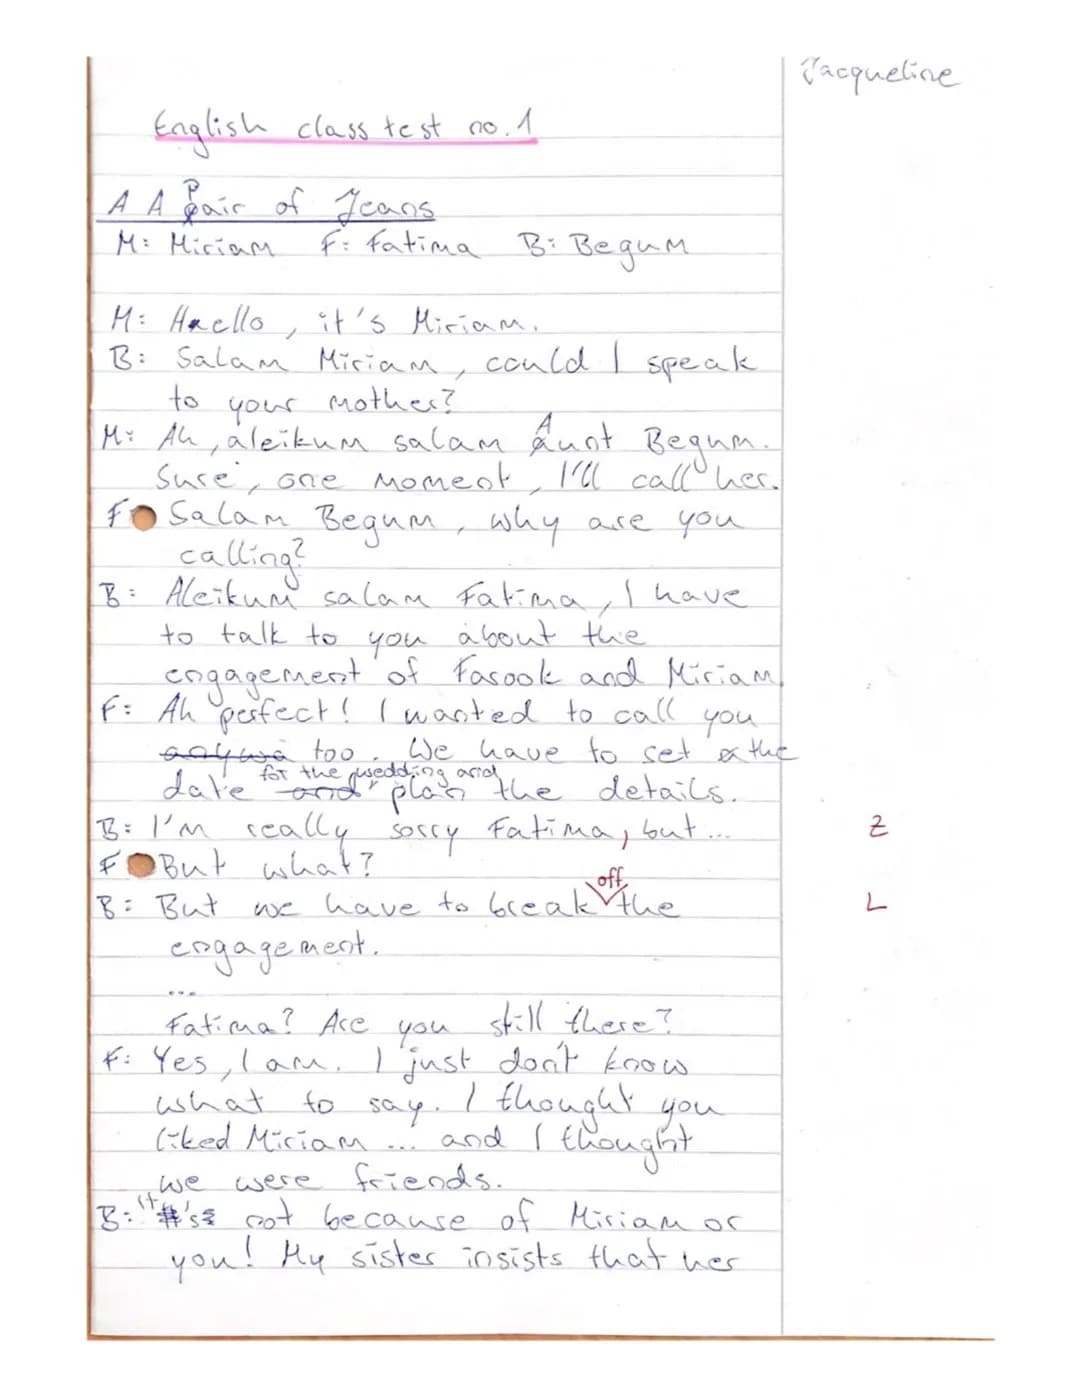 Jacqueline
English class test no. 1
A A Pair of Jeans
M: Miriam F: Fatima B: Begum
M: Hello, it's Miriam.
B: Salam Miriam, could I speak
to your mother?
M: Ah, aleikum salam Aunt Begum.
Sure, one moment, I'll call her.
F Salam Begum, why are you
calling?
B: Aleikum salam Fatima, I have
to talk to you about the
engagement of Farook and Miriam
F: Ah perfect! I wanted to call you
too. We have to set the
for the wedding and
date and plan the details.
B: I'm really sorry Fatima, but... Z
F But what?
off
B: But we have to break the L
engagement.
...
Fatima? Are you still there?
F: Yes, I am. I just don't know
what to say. I thought you
liked Miriam ... and I thought
we were friends.
B: It's not because of Miriam or
you! My sister insists that her